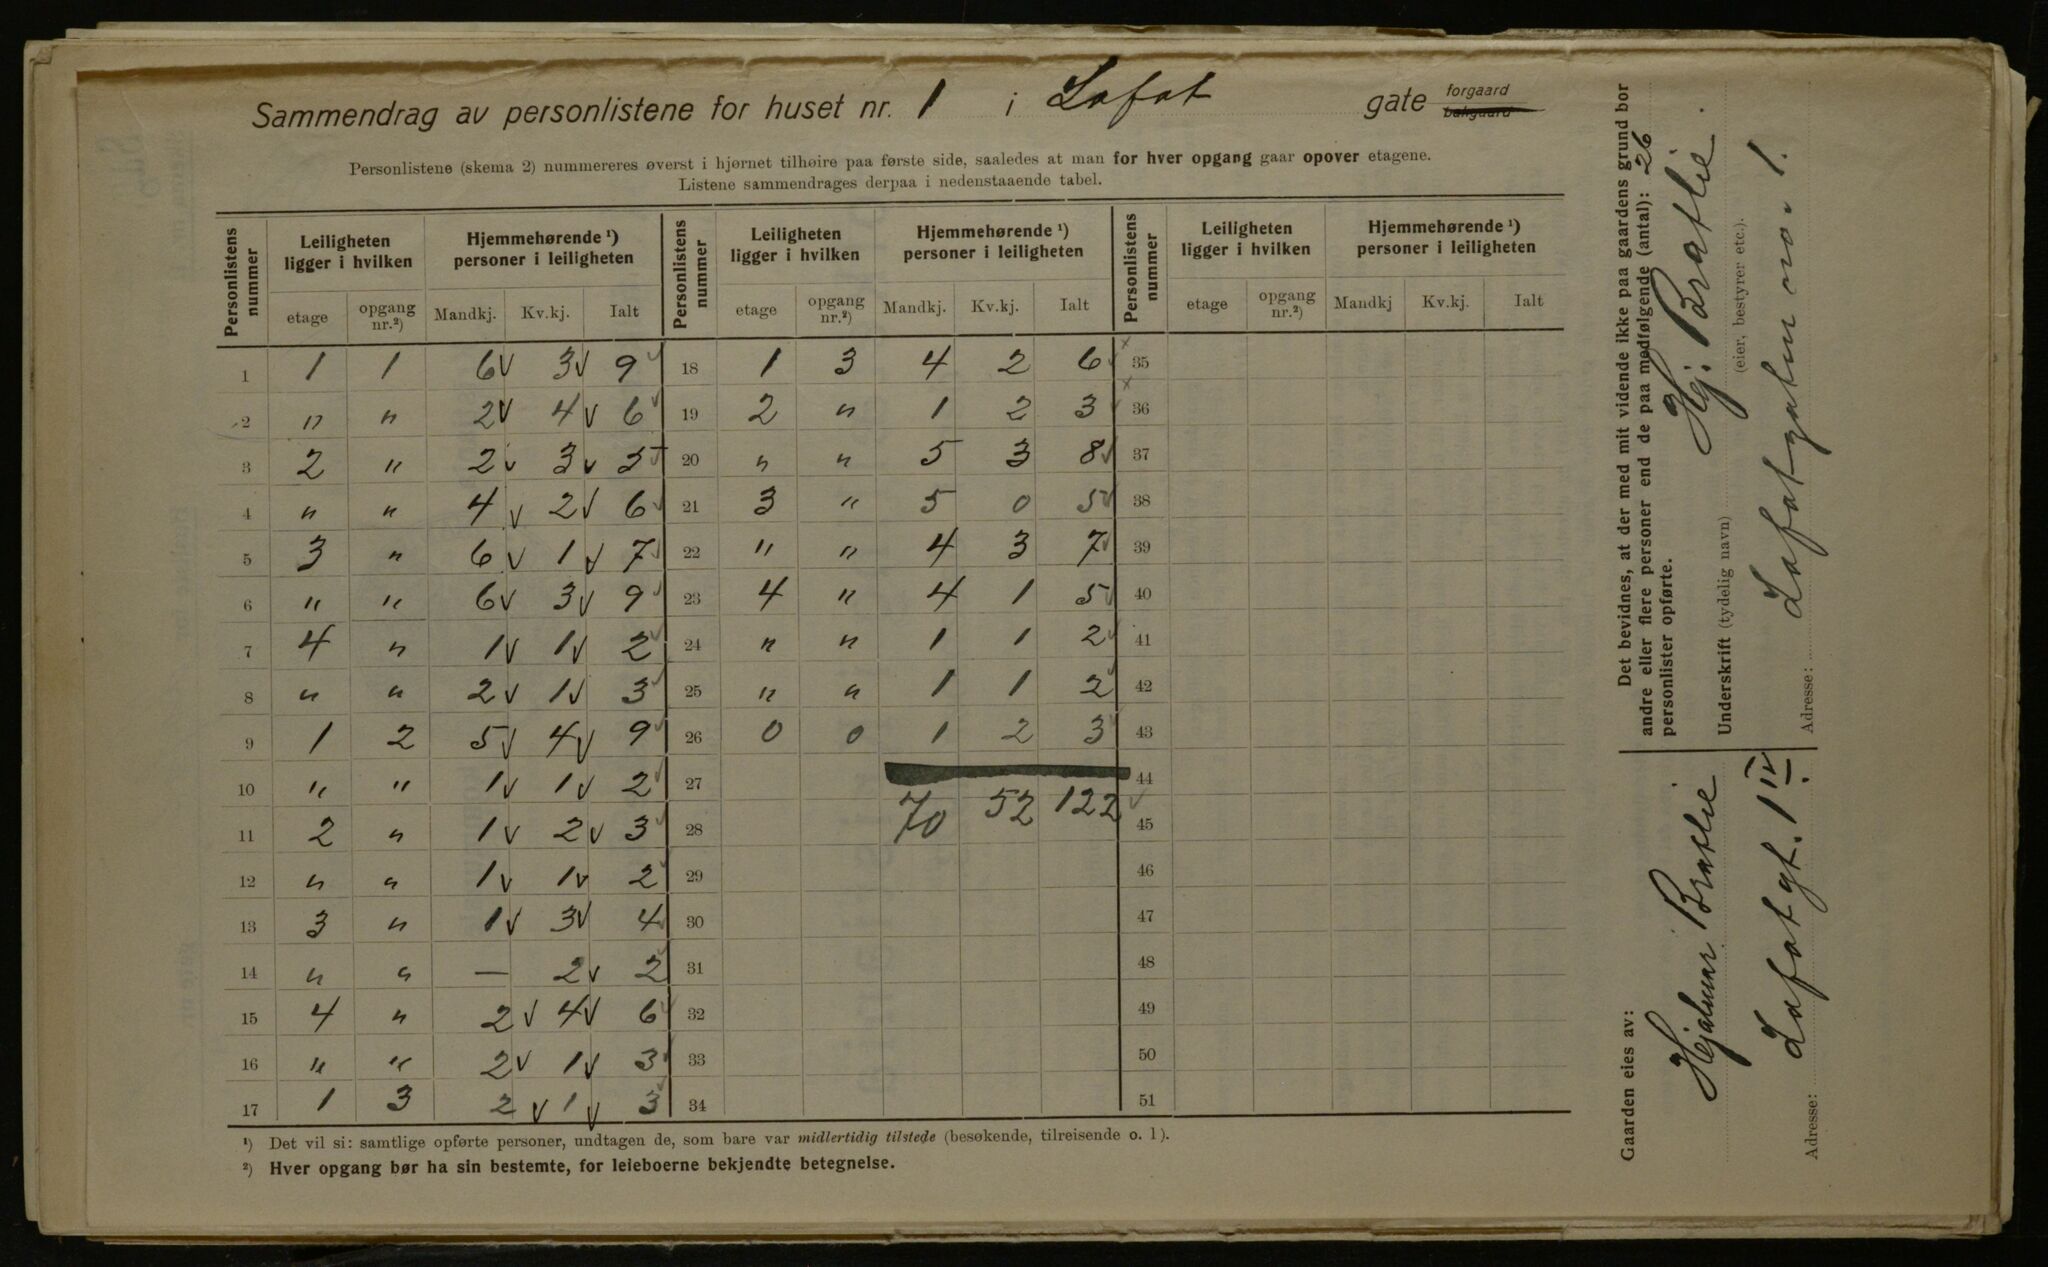 Sammendrag av personlistene for huset nr. 1 i Lofot gate forgaard bakgaard
Personlistene (skema 2) nummereres øverst i hjørnet tilhøire paa første side, saaledes at man for hver opgang gaar opover etagene.
Listene sammendrages derpaa i nedenstaaende tabel.
Personlistens nummer | Leiligheten ligger i hvilken | Hjemmehørende ¹) personer i leiligheten | Personlistens nummer | Leiligheten ligger i hvilken | Hjemmehørende ¹) personer i leiligheten | Personlistens nummer | Leiligheten ligger i hvilken | Hjemmehørende ¹) personer i leiligheten
etage | opgang nr.²) | Mandkj. | Kv.kj. | Ialt | etage | opgang nr.²) | Mandkj. | Kv.kj. | Ialt | etage | opgang nr.²) | Mandkj | Kv.kj. | Ialt
1 1 1 6 3 9 18 1 3 4 2 6 35
2 " " 2 4 6 19 2 " 1 2 3 36
3 2 " 2 3 5 20 " " 5 3 8 37
4 " " 4 2 6 21 3 " 5 0 5 38
5 3 " 6 1 7 22 " " 4 3 7 39
6 " " 6 3 9 23 4 " 4 1 5 40
7 4 " 1 1 2 24 " " 1 1 2 41
8 " " 2 1 3 25 " " 1 1 2 42
9 1 2 5 4 9 26 0 0 1 2 3 43
10 " " 1 1 2 27 44
11 2 " 1 2 3 28 70 52 122 45
12 " " 1 1 2 29 46
13 3 " 1 3 4 30 47
14 " " — 2 2 31 48
15 4 " 2 4 6 32 49
16 " " 2 1 3 33 50
17 1 3 2 1 3 34 51
¹) Det vil si: samtlige opførte personer, undtagen de, som bare var midlertidig tilstede (besøkende, tilreisende o. l).
²) Hver opgang bør ha sin bestemte, for leieboerne bekjendte betegnelse.
Det bevidnes, at der med mit vidende ikke paa gaardens grund bor
andre eller flere personer end de paa medfølgende (antal): 26
personlister opførte.
Underskrift (tydelig navn) Hj. Bratlie.
(eier, bestyrer etc.).
Adresse: Lofotgaten no. 1.
Gaarden eies av:
Hjalmar Bratlie
Adresse: Lofotgt. 1 IV.